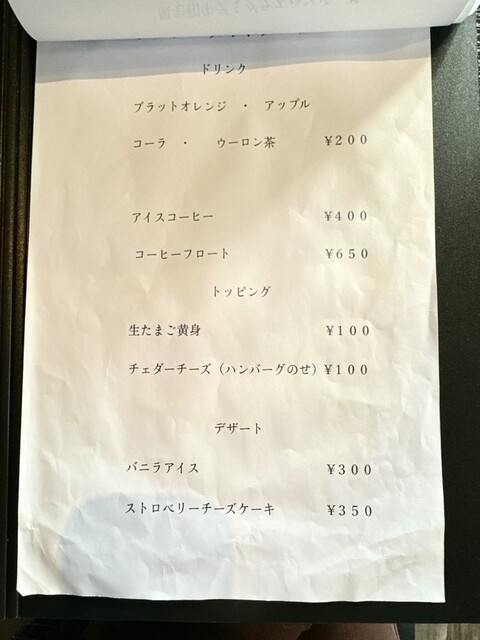 ドリンク
ブラットオレンジ ・ アップル
コーラ ・ ウーロン茶 ¥200
アイスコーヒー ¥400
コーヒーフロート ¥650
トッピング
生たまご黄身 ¥100
チェダーチーズ（ハンバーグのせ）¥100
デザート
バニラアイス ¥300
ストロベリーチーズケーキ ¥350